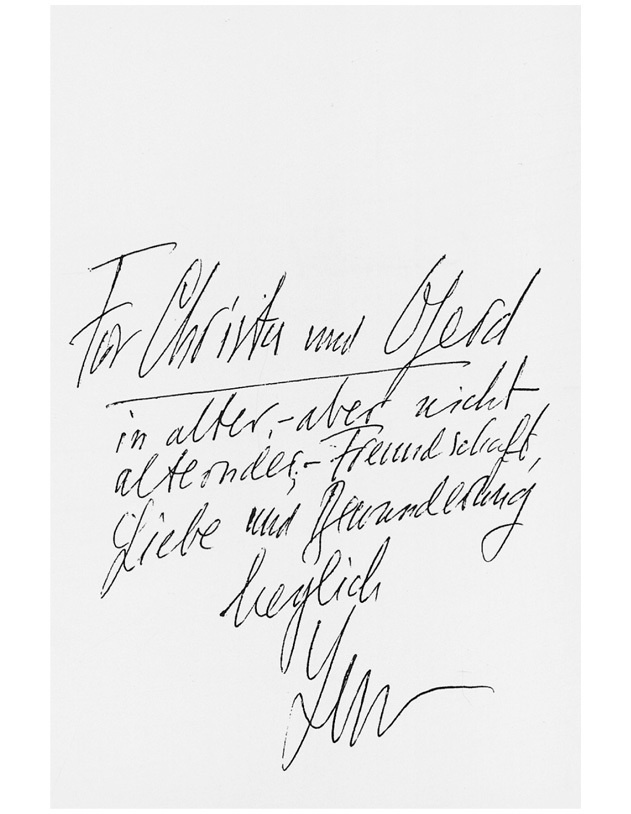 Für Christa und Gerd
in alter, - aber nicht
alternder, - Freundschaft,
Liebe und Bewunderung
herzlich